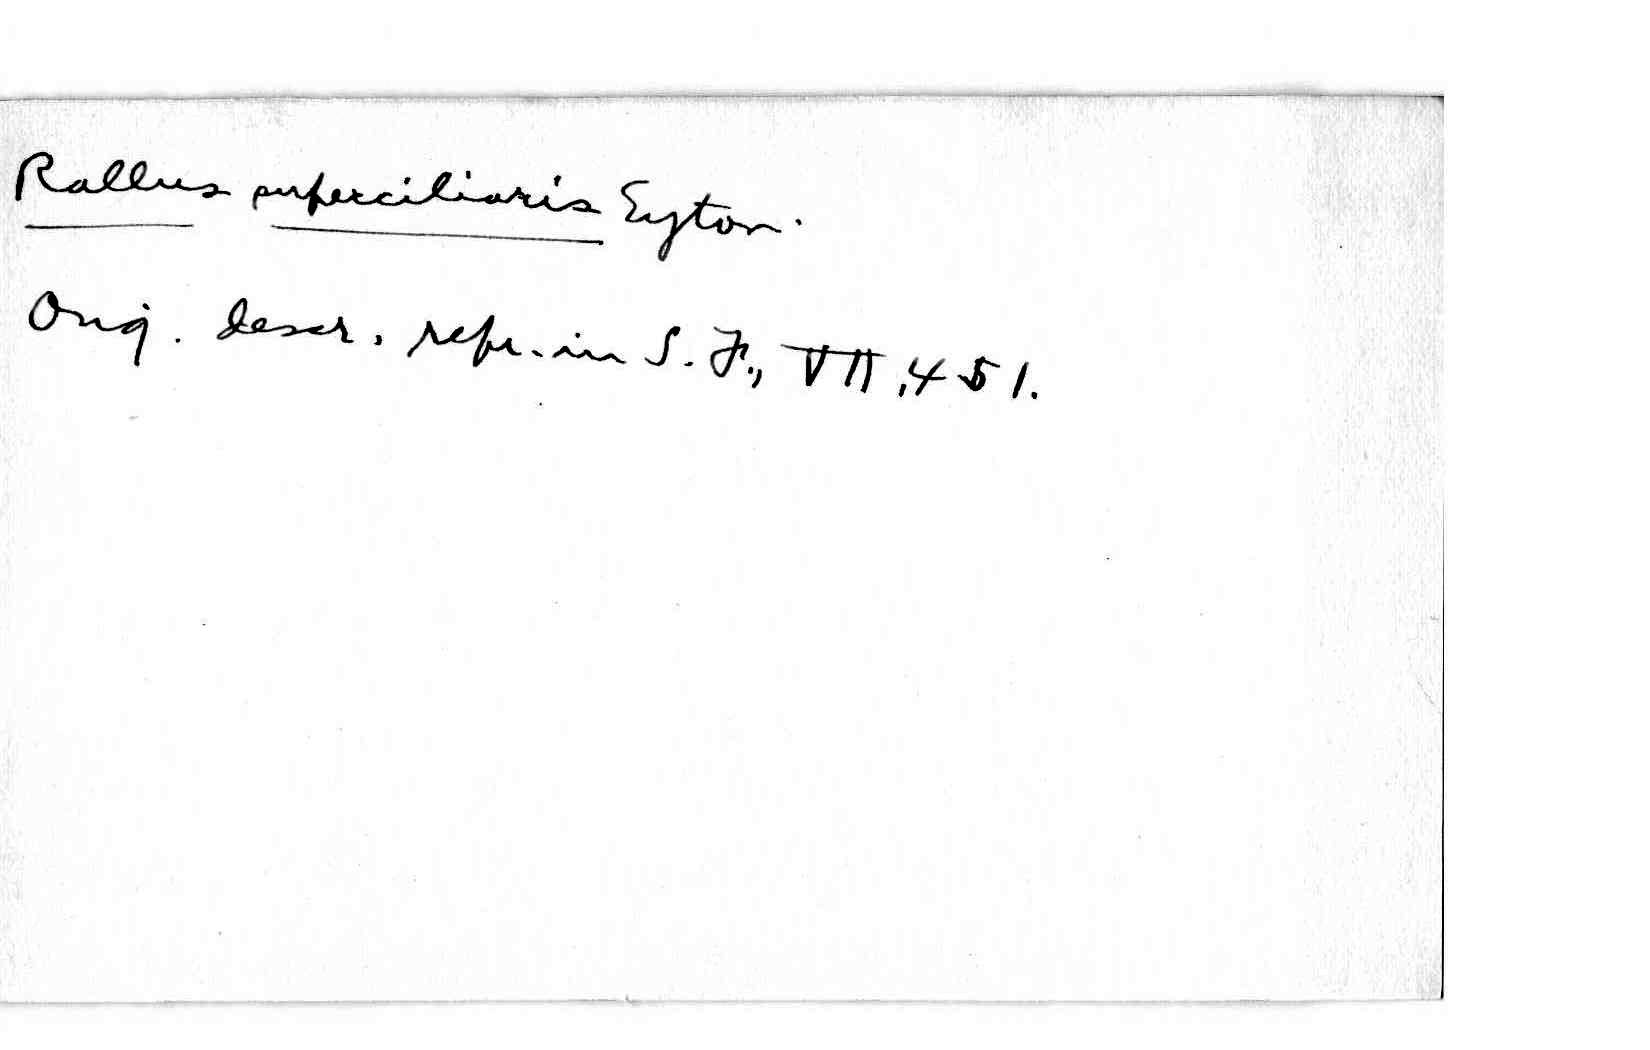 Rallus superciliaris Eyton.
Orig. descr. repr. in S. F., VII, 451.